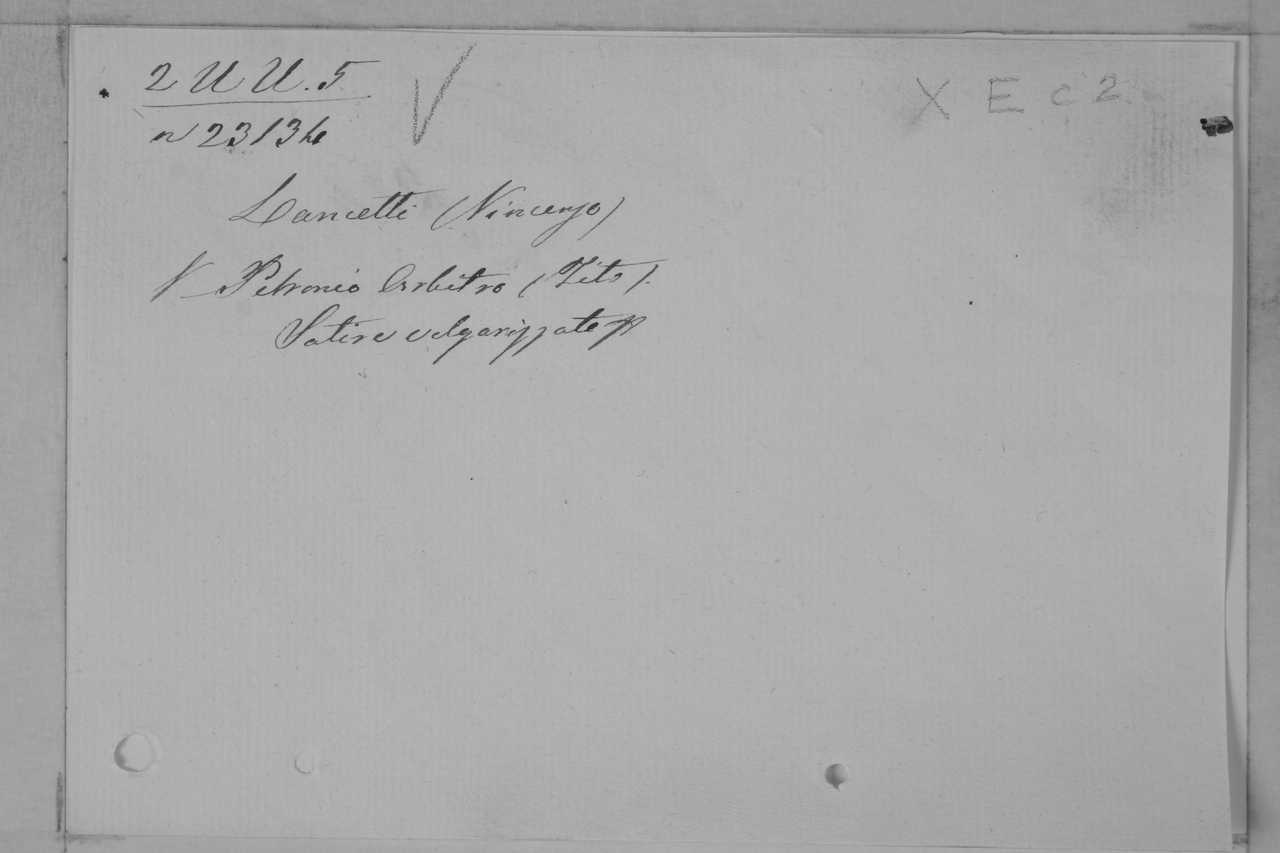 2 U U. 5
X E c 2
n 23134
Lancetti (Vincenzo)
V Petronio Arbitro (Tito).
Satire volgarizzate